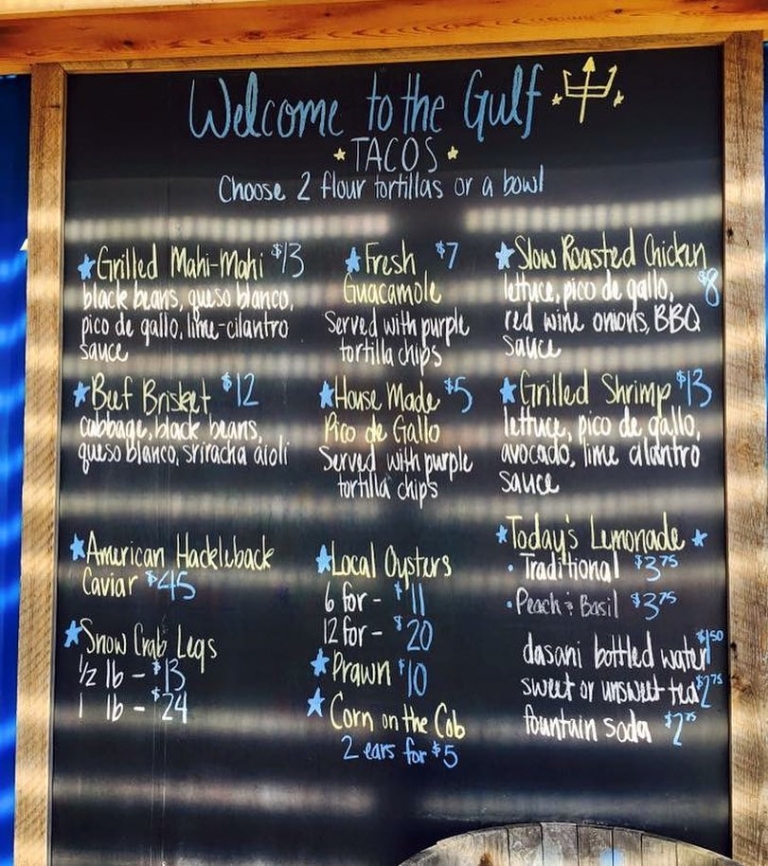 Welcome to the Gulf
TACOS
Choose 2 flour tortillas or a bowl
Grilled Mahi-Mahi $13
black beans, queso blanco,
pico de gallo, lime-cilantro
sauce
Beef Brisket $12
cabbage, black beans,
queso blanco, sriracha aioli
American Hackleback
Caviar $45
Snow Crab Legs
1/2 lb - $13
1 lb - $24
Fresh $7
Guacamole
Served with purple
tortilla chips
House Made $5
Pico de Gallo
Served with purple
tortilla chips
Local Oysters
6 for - $11
12 for - $20
Prawn $10
Corn on the Cob
2 ears for $5
Slow Roasted Chicken
lettuce, pico de gallo, $8
red wine onions, BBQ
sauce
Grilled Shrimp $13
lettuce, pico de gallo,
avocado, lime cilantro
sauce
Today's Lemonade
· Traditional $3.75
· Peach & Basil $3.75
dasani bottled water $1.50
sweet or unsweet tea $2.75
fountain soda $2.75